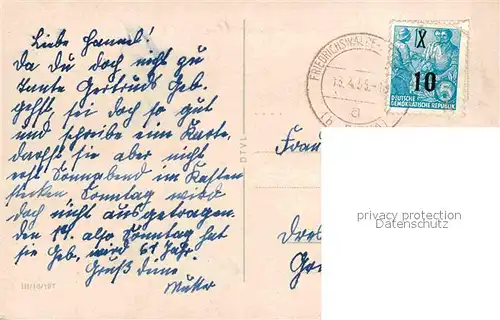 Liebe Hannel!
Da Du doch nicht zu
Tante Gertruds Geb.
gehst, sei doch so gut
und schreibe eine Karte,
darfst sie aber nicht
erst Sonnabend in Kasten
stecken, Sonntag wird
doch nicht ausgetragen.
Den 17. also Sonntag hat
sie Geb. wird 61 Jahr.
Gruß Deine
Mutter
III/18/197
DTVL
FRIEDRICHSWALDE
a
X
10
5
DEUTSCHE
DEMOKRATISCHE REPUBLIK
Frau
privacy protection
Datenschutz